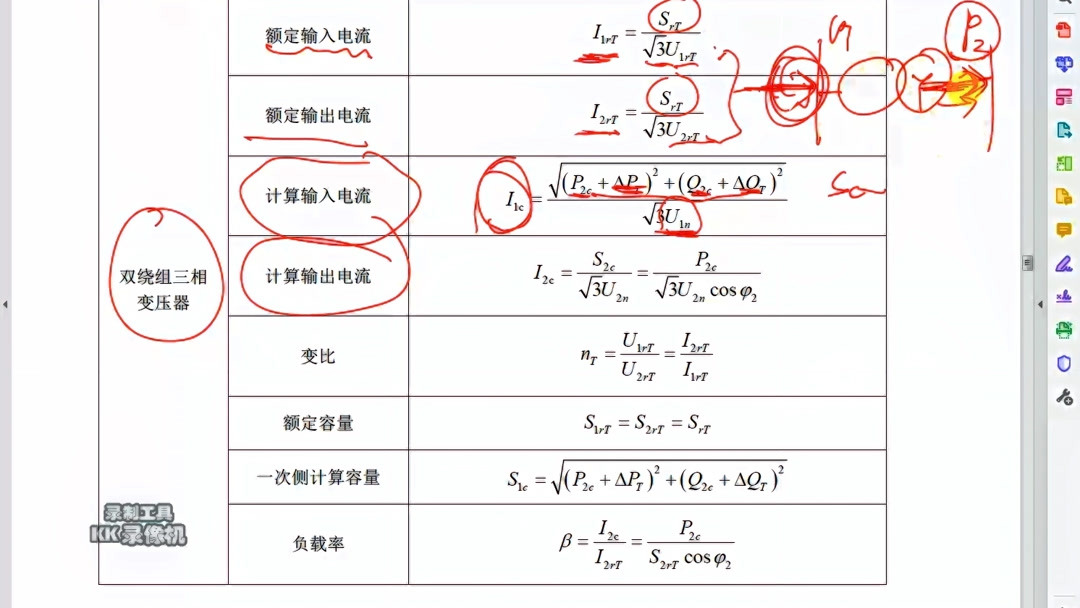 额定输入电流 I₁rT = SrT / √3U₁rT
P₂
额定输出电流 I₂rT = SrT / √3U₂rT
计算输入电流 I₁c = √((P₂c + ΔPT)² + (Q₂c + ΔQT)²) / √3U₁n
双绕组三相
变压器
计算输出电流 I₂c = S₂c / √3U₂n = P₂c / √3U₂n cos φ₂
变比 nT = U₁rT / U₂rT = I₂rT / I₁rT
额定容量 S₁rT = S₂rT = SrT
一次侧计算容量 S₁c = √((P₂c + ΔPT)² + (Q₂c + ΔQT)²)
负载率 β = I₂c / I₂rT = P₂c / S₂rT cos φ₂
录制工具
KK 录像机